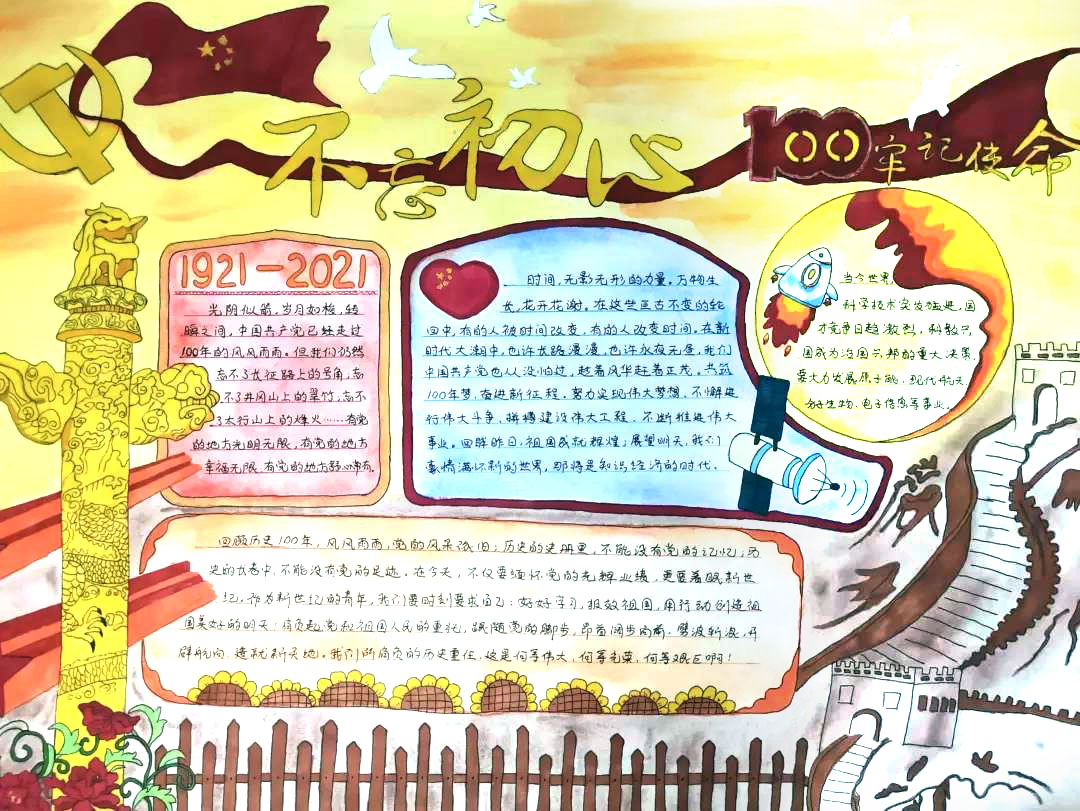 不忘初心
100牢记使命
1921-2021
光阴似箭,岁月如梭,转
瞬之间,中国共产党已经走过
100年的风风雨雨。但我们仍然
忘不了长征路上的号角,忘
不了井冈山上的翠竹,忘不
了太行山上的烽火……有党
的地方光明无限,有党的地方
幸福无限,有党的地方
时间,无影无形的力量。万物生
长,花开花谢。在这些亘古不变的轮
回中,有的人被时间改变,有的人改变时间。在新
时代大潮中,也许长路漫漫,也许永夜无尽,我们
中国共产党也从没怕过,趁着风华赶着正茂。共筑
100年梦,奋进新征程。努力实现伟大梦想,不懈进
行伟大斗争,拼搏建设伟大工程,不断推进伟大
事业。回眸昨日,祖国成就辉煌;展望明天,我们
豪情满怀新的世界,那将是知识经济的时代。
当今世界,
科学技术突发猛进,国
才竞争日趋激烈,科教兴
国成为治国兴邦的重大决策
要大力发展原子能,现代航天
分子生物、电子信息等事业。
回顾历史100年,风风雨雨,党的风采依旧;历史的史册里,不能没有党的记忆;历
史的长卷中,不能没有党的足迹。在今天,不仅要缅怀党的光辉业绩,更要着眼新世
纪,作为新世纪的青年,我们要时刻要求自己:好好学习,报效祖国,用行动创造祖
国美好的明天!肩负起党和祖国人民的重托,跟随党的脚步,昂首阔步向前,劈波斩浪,开
辟航向,造就新天地。我们所肩负的历史重任,这是何等伟大,何等光荣,何等艰巨啊!